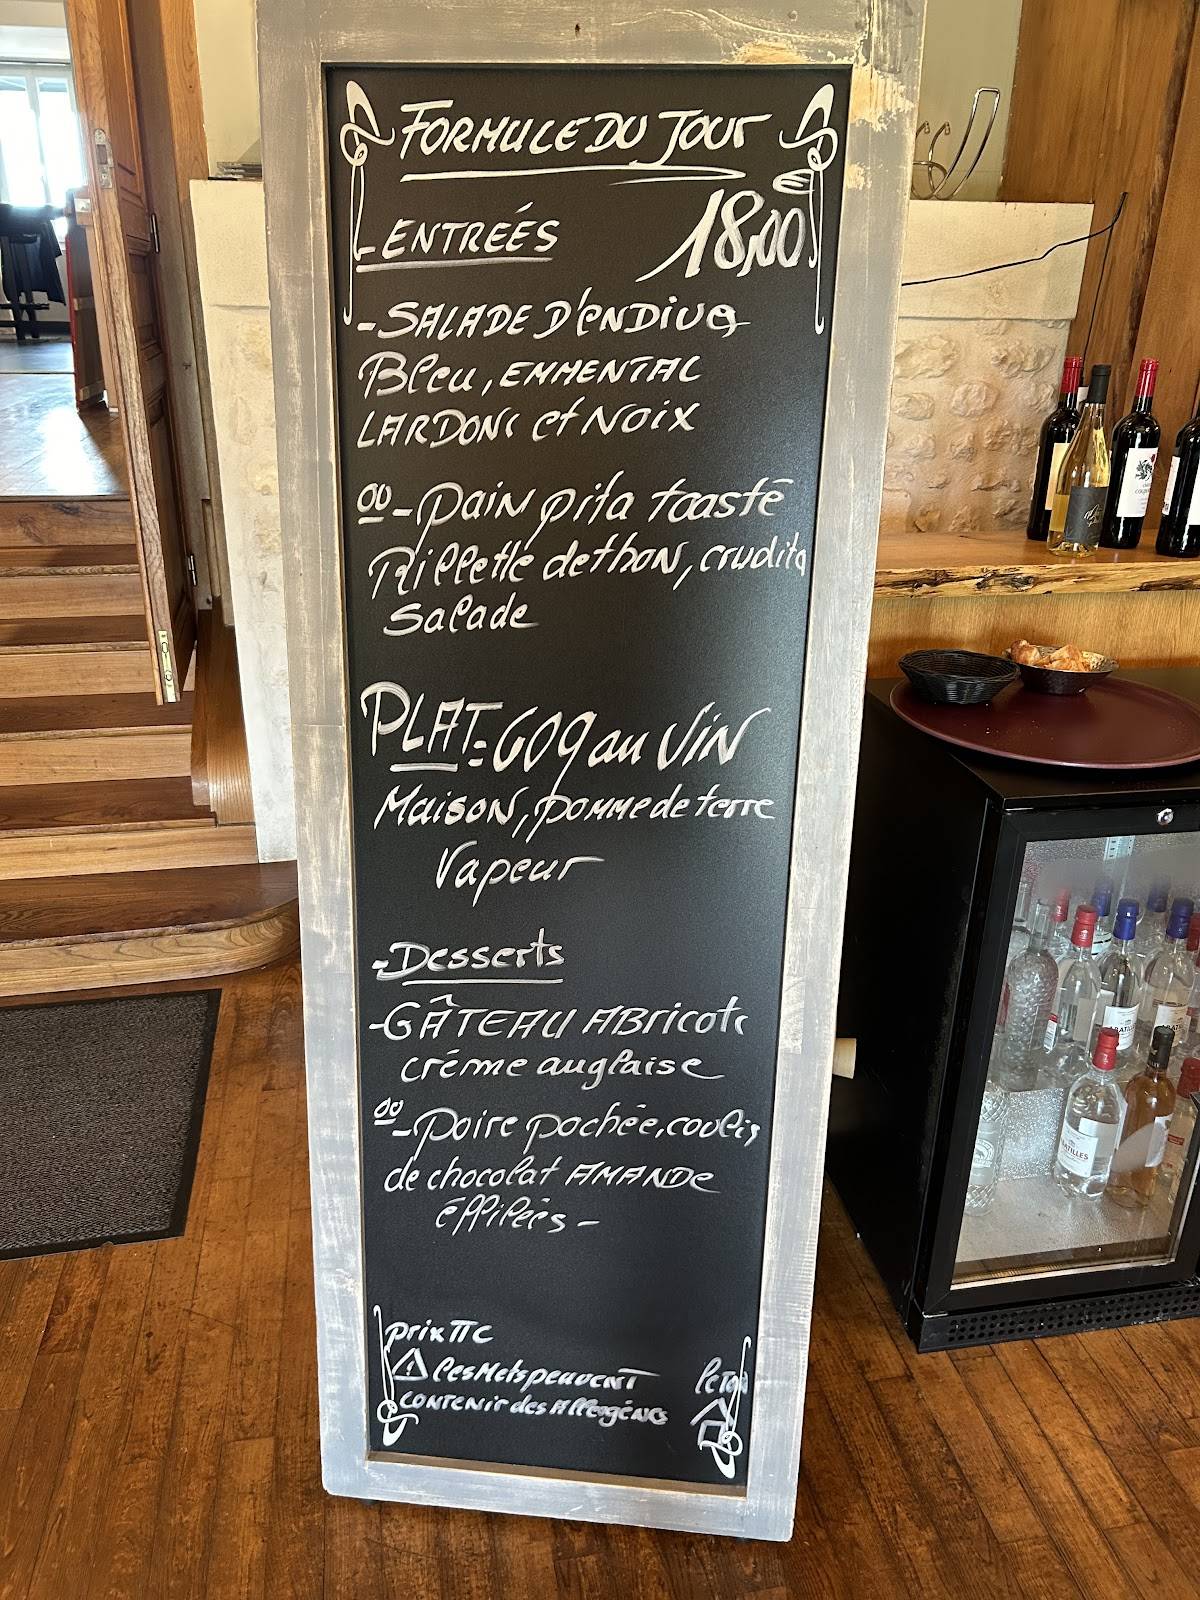 FORMULE DU JOUR
18,00
- ENTREÉS
- SALADE D'ENDIVES
Bleu, EMMENTAL
LARDONS et NOIX
ou - pain pita toasté
Rillette de thon, crudités
salade
PLAT = COQ au VIN
Maison, pomme de terre
Vapeur
- Desserts
- GÂTEAU ABricots
créme anglaise
ou - poire pochée, coulis
de chocolat AMANDE
éffilées -
prix TTC
les Mets peuvent
contenir des Allergènes
ABATILLES